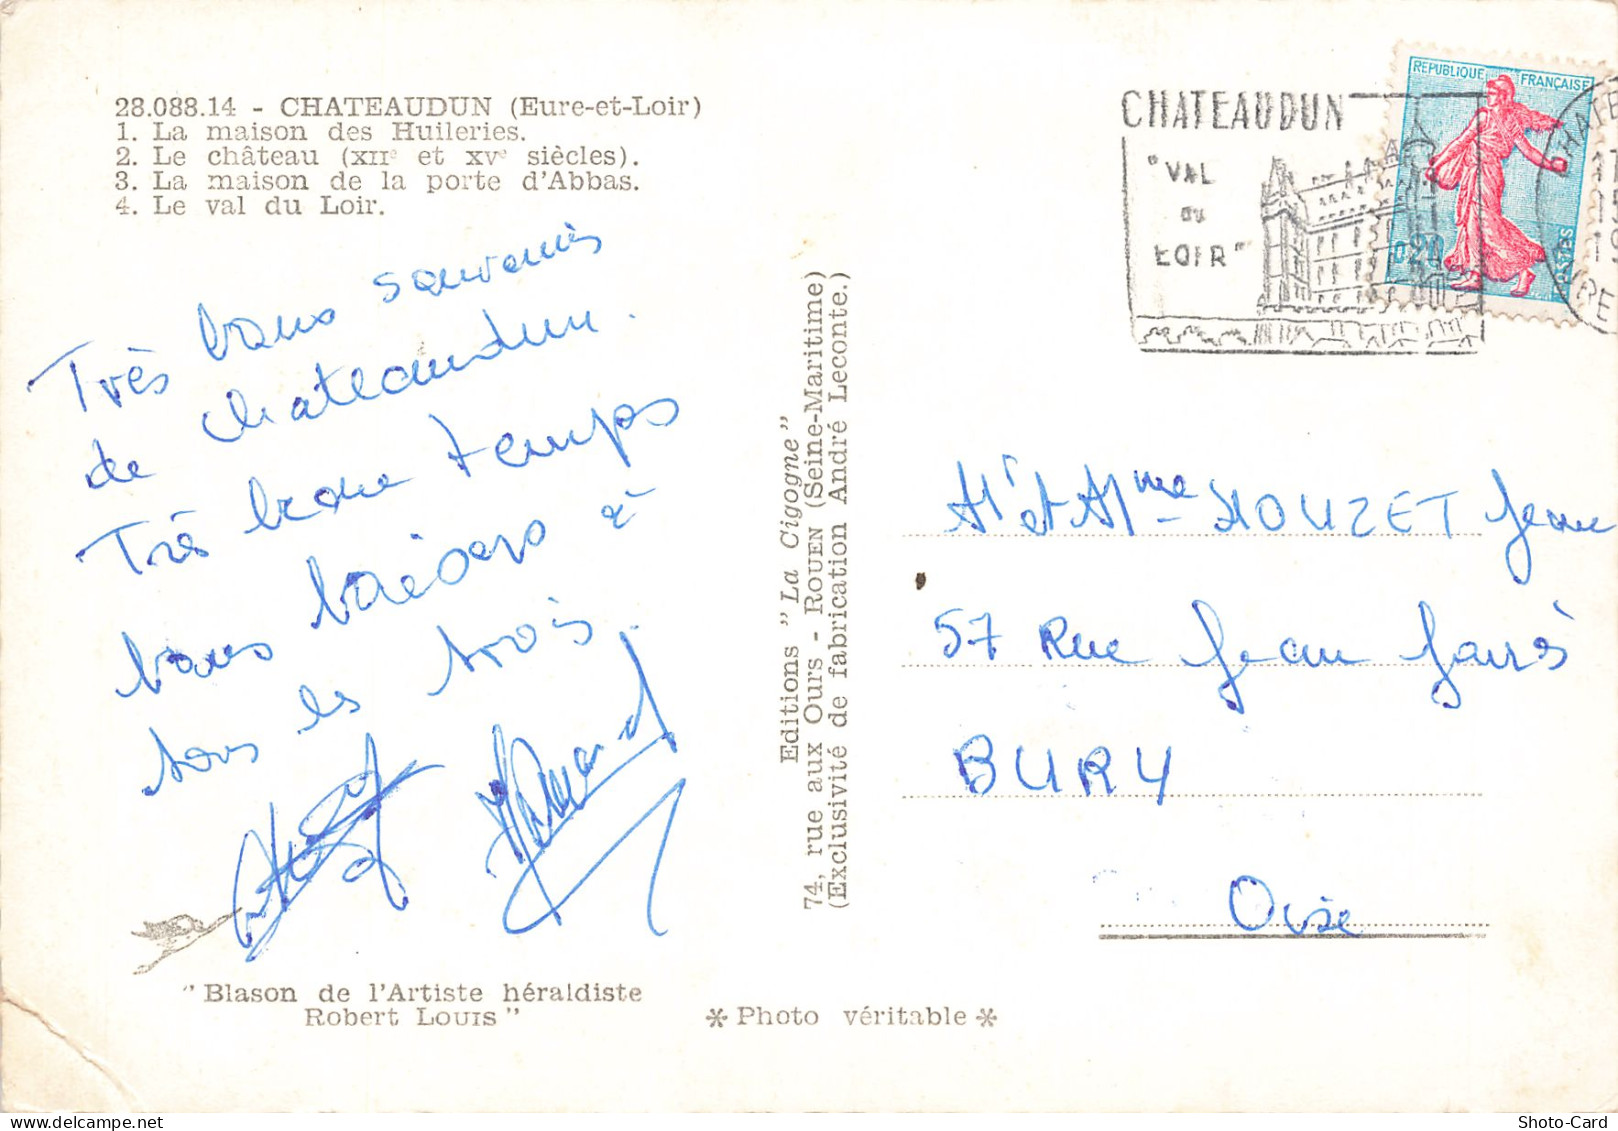 28.088.14 - CHATEAUDUN (Eure-et-Loir)
1. La maison des Huileries.
2. Le château (XIIe et XVe siècles).
3. La maison de la porte d'Abbas.
4. Le val du Loir.
Très bons souvenirs
de Chateaudun.
Très beau temps
bons baisers à
tous les trois.
" Blason de l'Artiste héraldiste
Robert LOUIS "
Editions " La Cigogne "
74, rue aux Ours - ROUEN (Seine-Maritime)
(Exclusivité de fabrication André Leconte.)
* Photo véritable *
CHATEAUDUN
"VAL
DU
LOIR"
REPUBLIQUE FRANÇAISE
0,20
POSTES
Mr et Mme HOUZET Jean
57 Rue Jean Jaurès
BURY
Oise
Shoto-Card